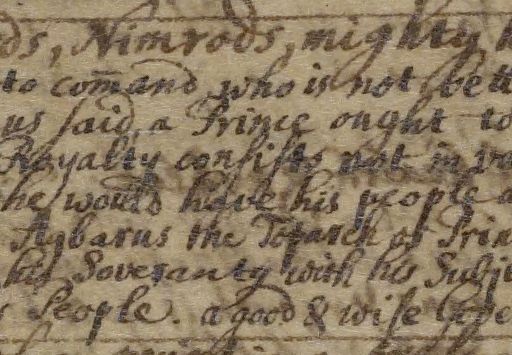 ds, Nimrods, mighty h
to com̄and who is not bett
us said a Prince ought to
Royalty consists not in va
he would have his people a
Agbarus the Toparch or Prin
his Soveranty with his Subje
s People. a good & wise